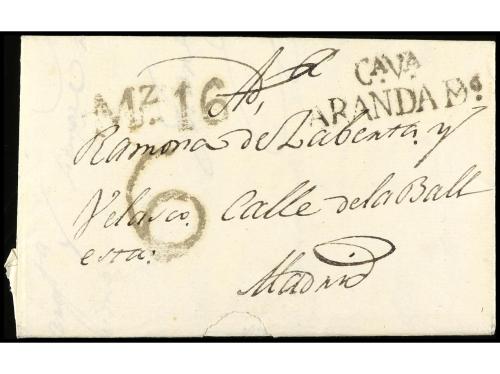 Mz. 16
CA.VA
ARANDA Do.
A Da,
Ramona de Labenta y
Velasco. Calle dela Ball
esta.
6
Madrid